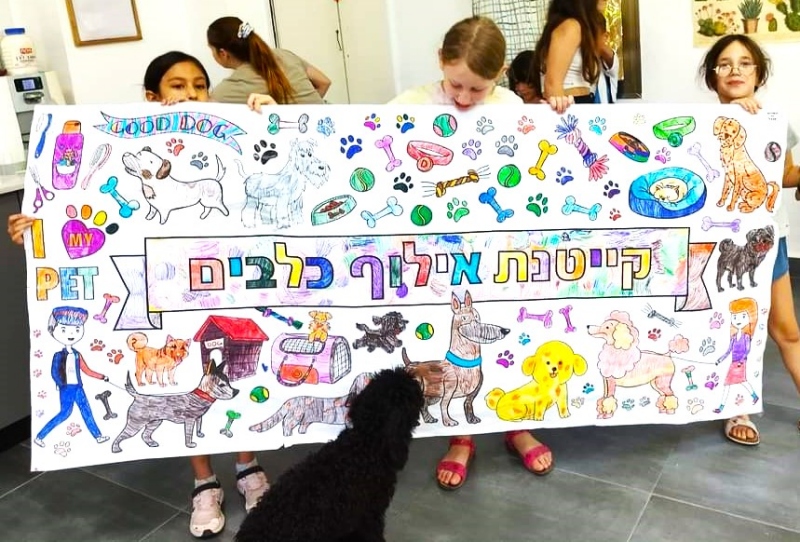 GOOD DOG
I
MY
PET
קייטנת אילוף כלבים
DOG